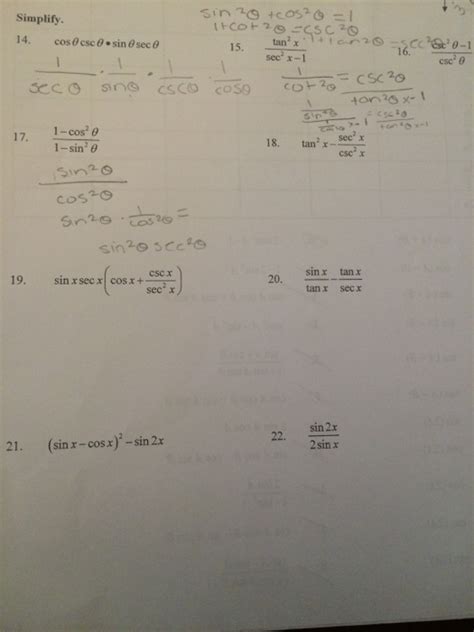 Simplify.
sin²θ + cos²θ = 1
1 + cot²θ = csc²θ
1 + tan²θ = sec²θ
14. cosθ cscθ • sinθ secθ
1/secθ · 1/sinθ · 1/cscθ · 1/cosθ
15. tan² x / sec² x−1
1/cot²θ = csc²θ/tan²θ x−1
16. csc² θ−1 / csc² θ
17. 1−cos² θ / 1−sin² θ
sin²θ / cos²θ
sin²θ · 1/cos²θ =
sin²θ sec²θ
18. tan² x − sec² x / csc² x
19. sin x sec x (cos x + csc x / sec² x)
20. sin x / tan x − tan x / sec x
21. (sin x − cos x)² − sin 2x
22. sin 2x / 2 sin x